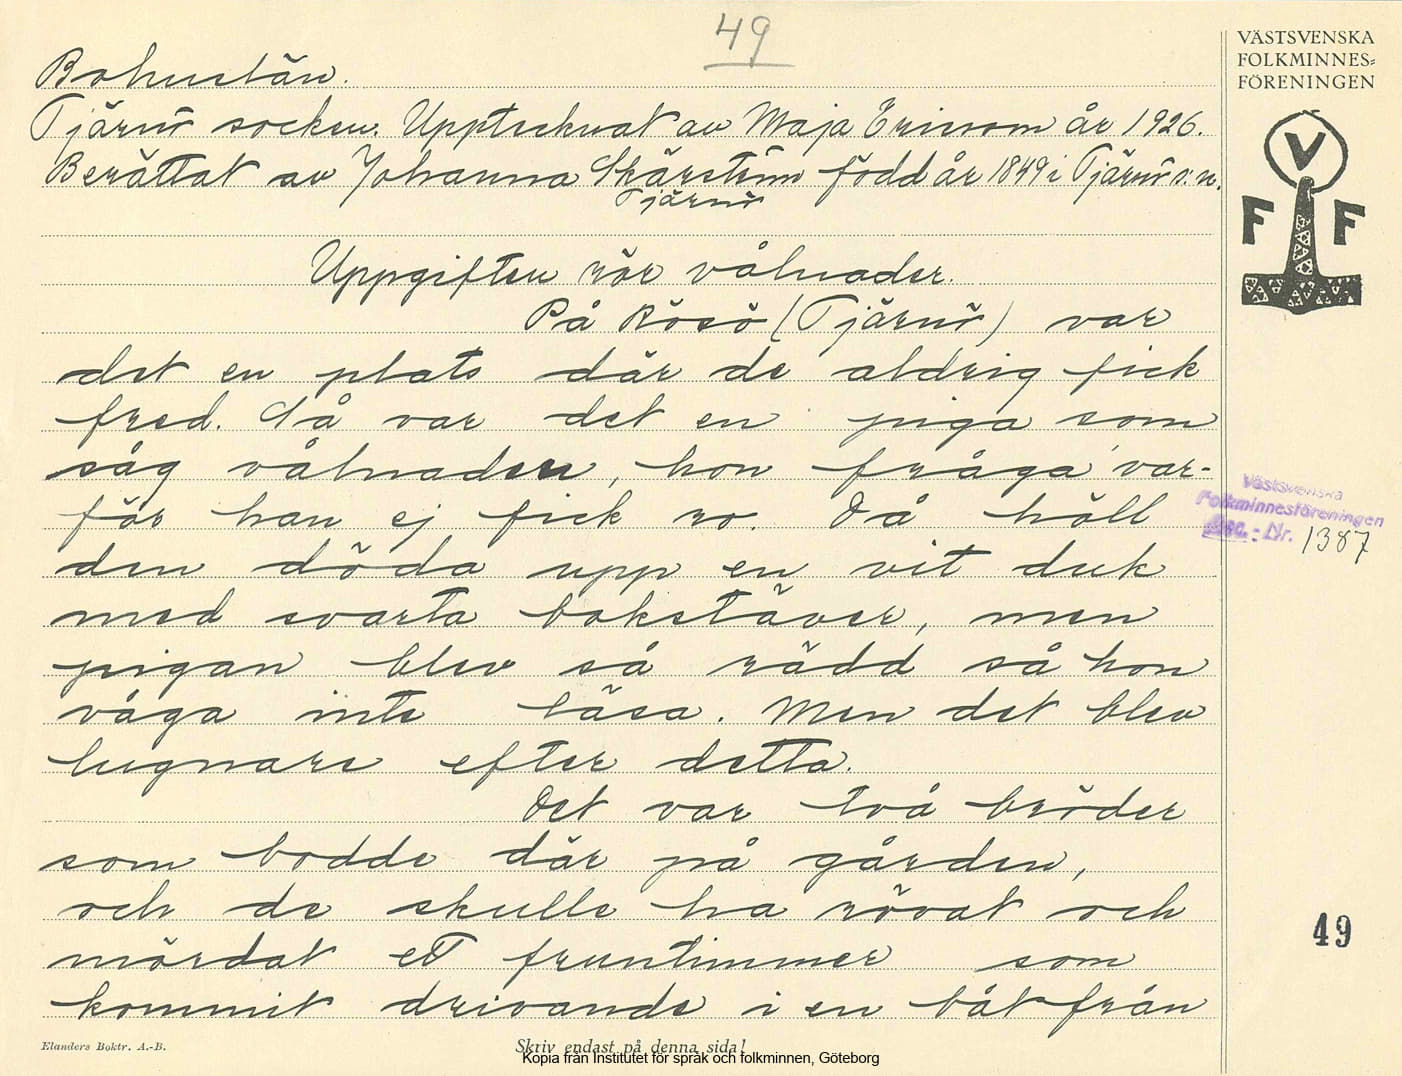 49
VÄSTSVENSKA
FOLKMINNES=
FÖRENINGEN
V
F F
Bohuslän.
Tjärnö socken. Upptecknat av Maja Ericson år 1926.
Berättat av Johanna född år 1849 i Tjärnö s:n.
Tjärnö
Uppgiften rör vålnader.
På Rösö (Tjärnö) var
det en plats där de aldrig fick
fred. Så var det en piga som
såg vålnaden, hon fråga' var-
för han ej fick ro. Då höll
den döda upp en vit duk
med svarta bokstäver, men
pigan blev så rädd så hon
våga inte läsa. Men det blev
lugnare efter detta.
Det var två bröder
som bodde där på gården,
och de skulle ha rövat och
mördat ett fruntimmer som
kommit drivande i en båt från
Västsvenska
Folkminnesföreningen
Acc. - Nr. 1387
49
Elanders Boktr. A.-B.
Skriv endast på denna sida!
Kopia från Institutet för språk och folkminnen, Göteborg